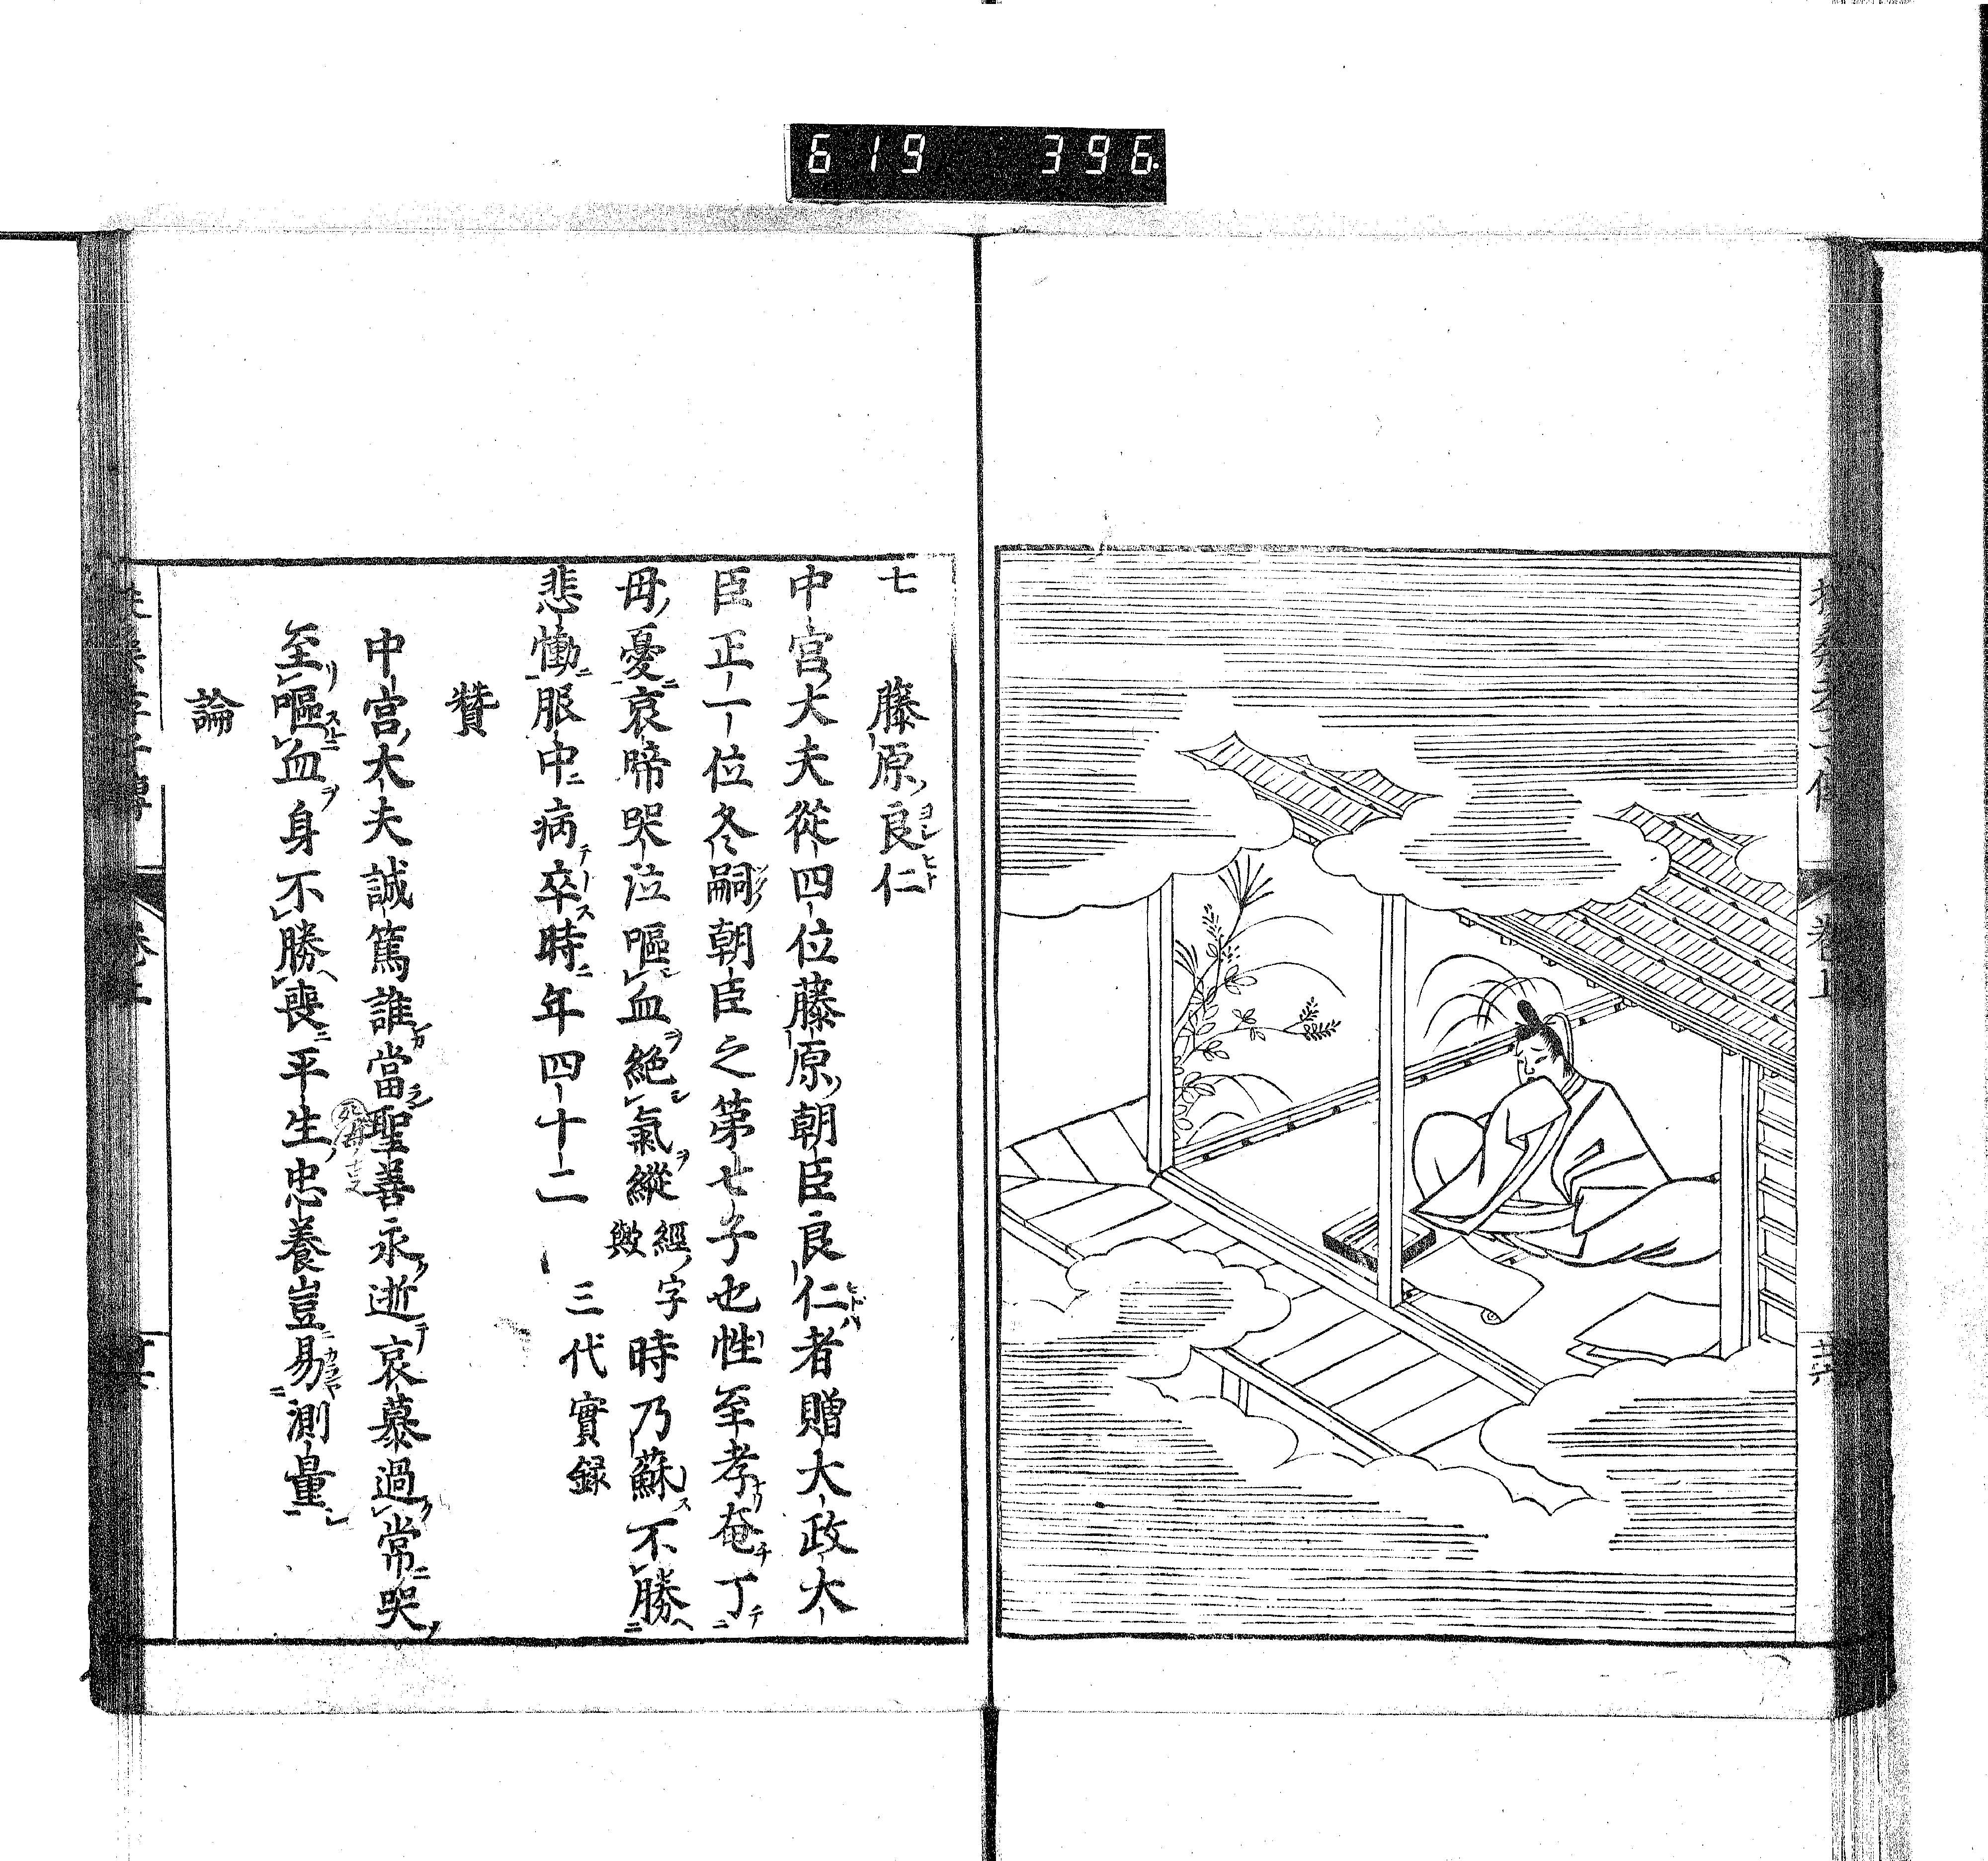 619 396
七 藤原良仁
中宮大夫從四位藤原朝臣良仁者贈大政大
臣正一位冬嗣朝臣之第七子也性至孝奄丁
毋憂哀啼哭泣嘔血絶氣縱經字歟時乃蘇不勝
悲慟服中病卒時年四十二 三代實録
贊
中宮大夫誠篤誰當聖善永逝哀慕過常哭
至嘔血身不勝喪平生忠養豈易測量
論